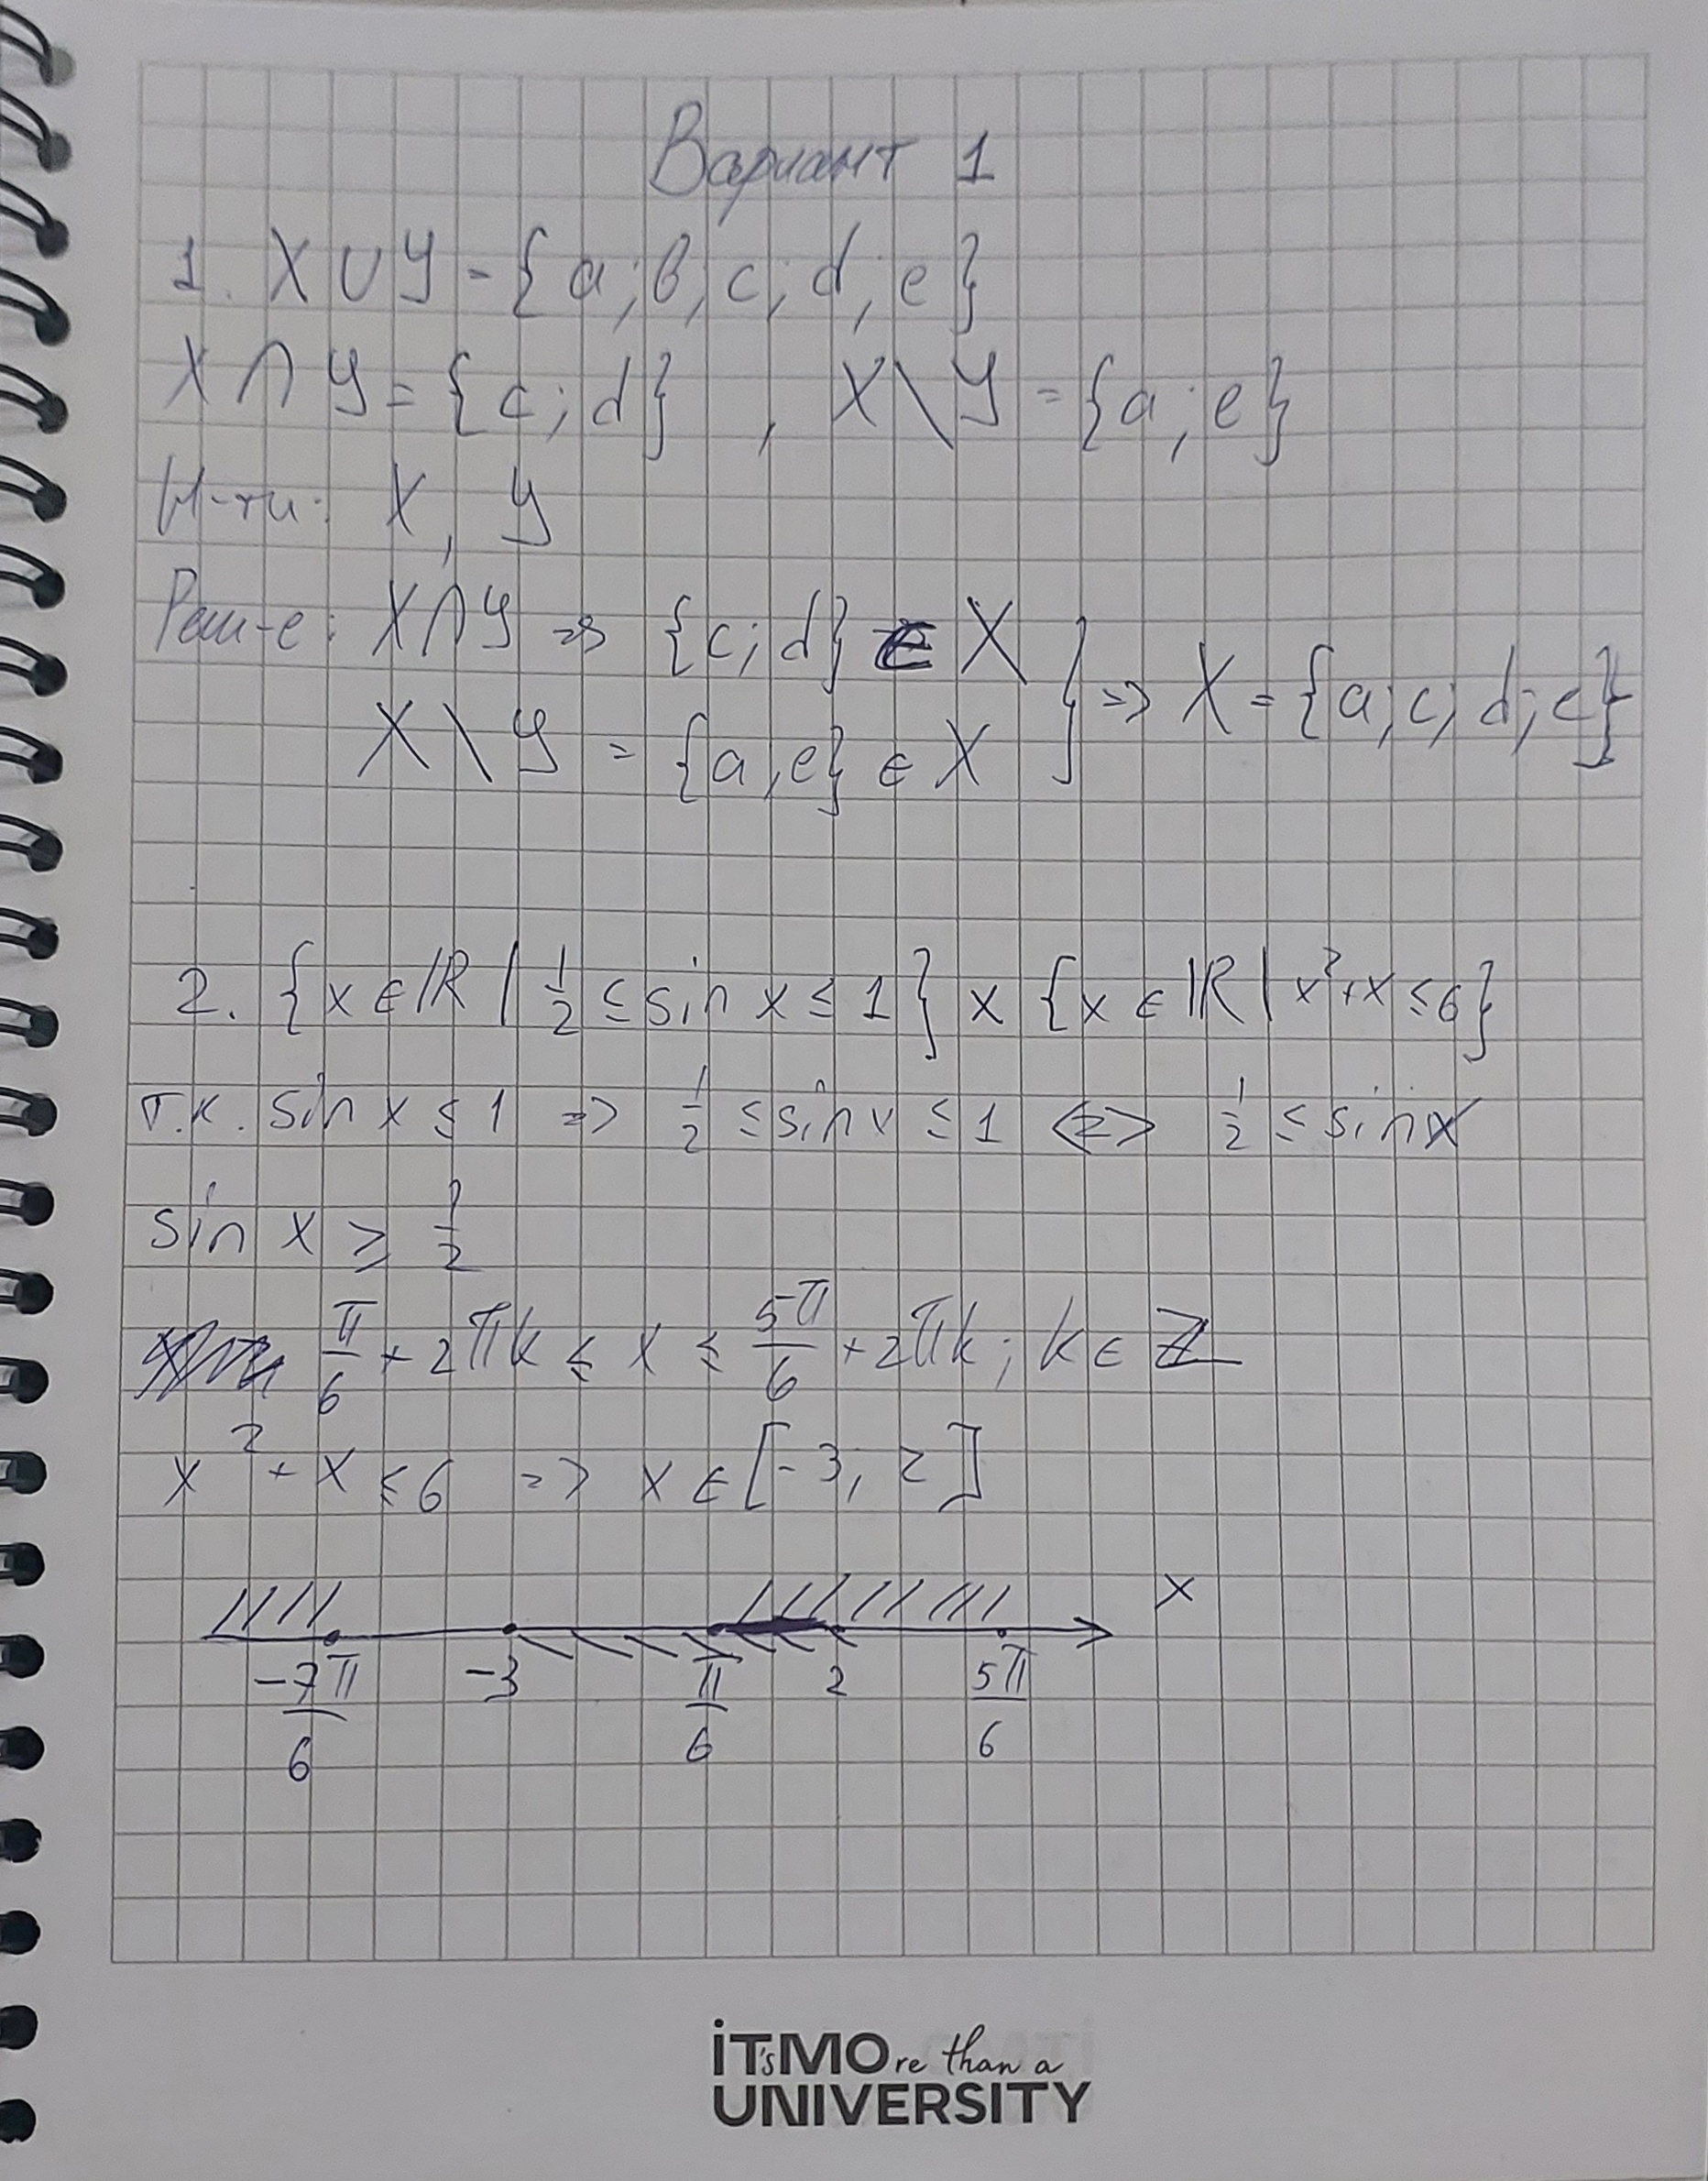 Вариант 1
1. X ∪ Y = {a; b; c; d; e}
X ∩ Y = {c; d} , X \ Y = {a; e}
Н-ти: X, Y
Реш-е: X ∩ Y => {c; d} ∈ X
X \ Y = {a; e} ∈ X } => X = {a; c; d; e}
2. {x ∈ ℝ | 1/2 ≤ sin x ≤ 1} x {x ∈ ℝ | x² + x ≤ 6}
т.к. sin x ≤ 1 => 1/2 ≤ sin x ≤ 1 <=> 1/2 ≤ sin x
sin x ≥ 1/2
π/6 + 2πk ≤ x ≤ 5π/6 + 2πk; k ∈ ℤ
x² + x ≤ 6 => x ∈ [-3, 2]
x
-7π/6 -3 π/6 2 5π/6
iT'sMOre than a
UNIVERSITY